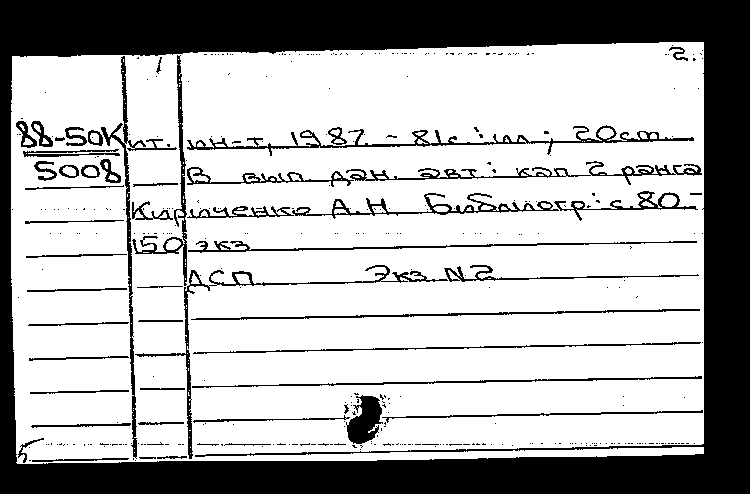 2.
88-50К ит. ин-т, 1987. - 81с. : ил ; 20см.
5008 В вып. дан. авт : кап 2 ранга
Кириченко А.Н. Библиогр: с.80-
150 экз
ДСП Экз N2
5